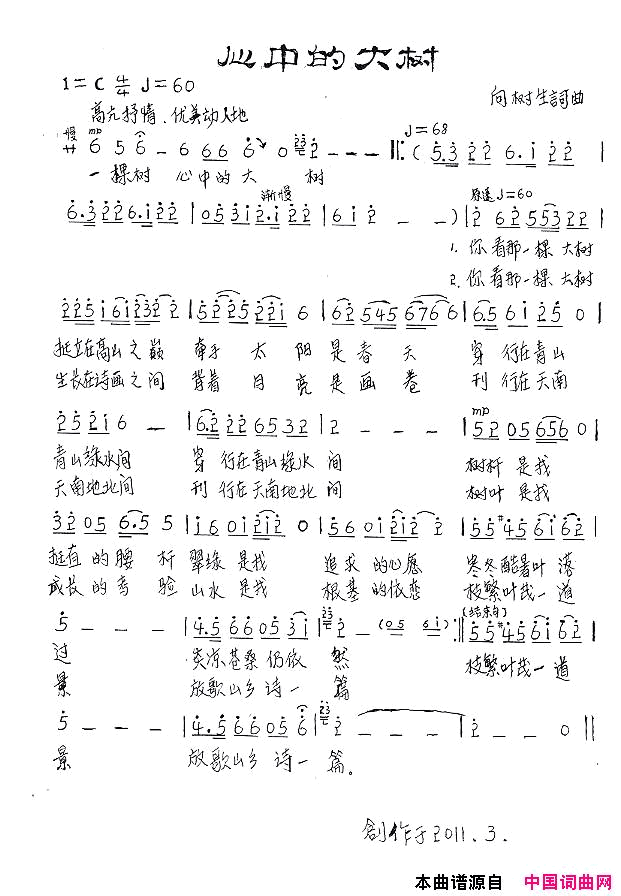 心中的大树
1=C 4/4 ♩=60
向树生詞曲
高亢抒情、优美动人地
慢 mp ♩=68
サ 6 5 6 - 6 6 6 6 0 2 - - - ‖: ( 5.3 2 2 6.1 2 2 |
一棵树 心中的大 树
渐慢 原速 ♩=60
6.3 2 2 6.1 2 2 | 0 5 3 1 2.1 2 2 | 6 1 2 - - ) | 2 6 2 5 5 3 2 2 |
1. 你看那一棵大树
2. 你看那一棵大树
2 2 5 1 6 1 2 3 2 2 | 5 2 2 5 2 2 1 6 | 6 2 5 4 5 6 7 6 6 | 6.5 6 1 2 5 0 |
挺立在高山之巅 牵手太阳是春天 穿行在青山
生长在诗画之间 背着月亮是画卷 刊行在天南
mp
2 5 2 1 6 - | 6.2 2 2 6 5 3 2 | 2 - - - | 5 2 0 5 6 5 6 0 |
青山绿水间 穿行在青山绿水间 树杆是我
天南地北间 刊行在天南地北间 树叶是我
3 2 0 5 6.5 5 | 1 6 0 1 2 1 2 0 | 5 6 0 1 2 1 2 0 | 5 5 #4 5 6 1 6 2 |
挺直的腰杆 翠绿是我 追求的心愿 寒冬酷暑叶落
成长的考验 山水是我 根基的依恋 枝繁叶茂一道
(结束句)
5 - - - | 4.5 6 6 0 5 3 1 | 2 - (0 5 6 1) :‖ 5 5 #4 5 6 1 6 2 |
过 炎凉苍桑仍依然 枝繁叶茂一道
景 放歌山乡诗一篇
5 - - - | 4.5 6 6 0 5 6 | 2 - - - | 2 - - 0 ‖
景 放歌山乡诗一篇。
創作于2011.3.
本曲谱源自 中国词曲网